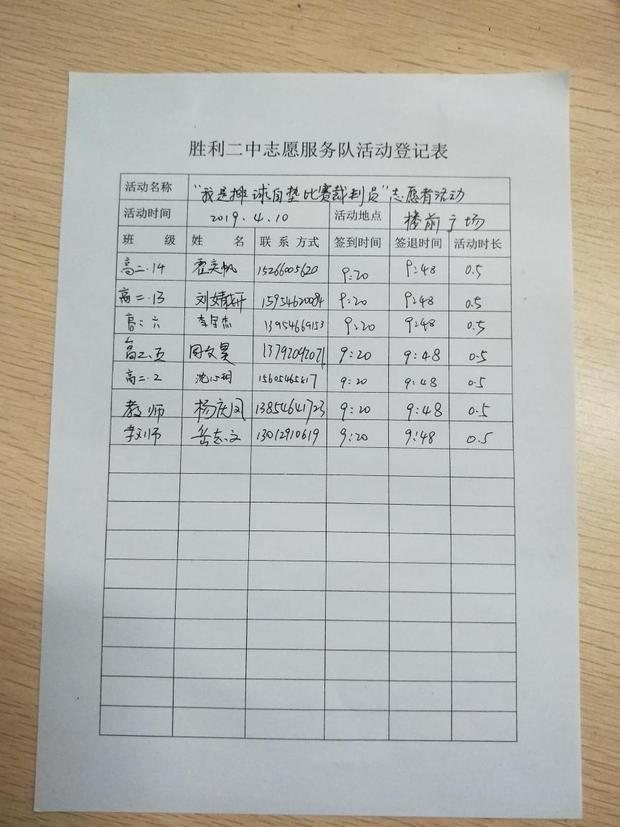 胜利二中志愿服务队活动登记表
活动名称 "我是排球自垫比赛裁判员"志愿者活动
活动时间 2019.4.10 活动地点 楼前广场
班 级 姓 名 联系方式 签到时间 签退时间 活动时长
高二.14 霍奕帆 1526605620 9:20 9:48 0.5
高二.13 刘婧 15954620084 9:20 9:48 0.5
高二六 李宇杰 13954669153 9:20 9:48 0.5
高二.五 周文昊 13792092021 9:20 9:48 0.5
高二.2 沈 15605465417 9:20 9:48 0.5
教师 杨庆凤 13854641723 9:20 9:48 0.5
教师 岳志文 13012910619 9:20 9:48 0.5